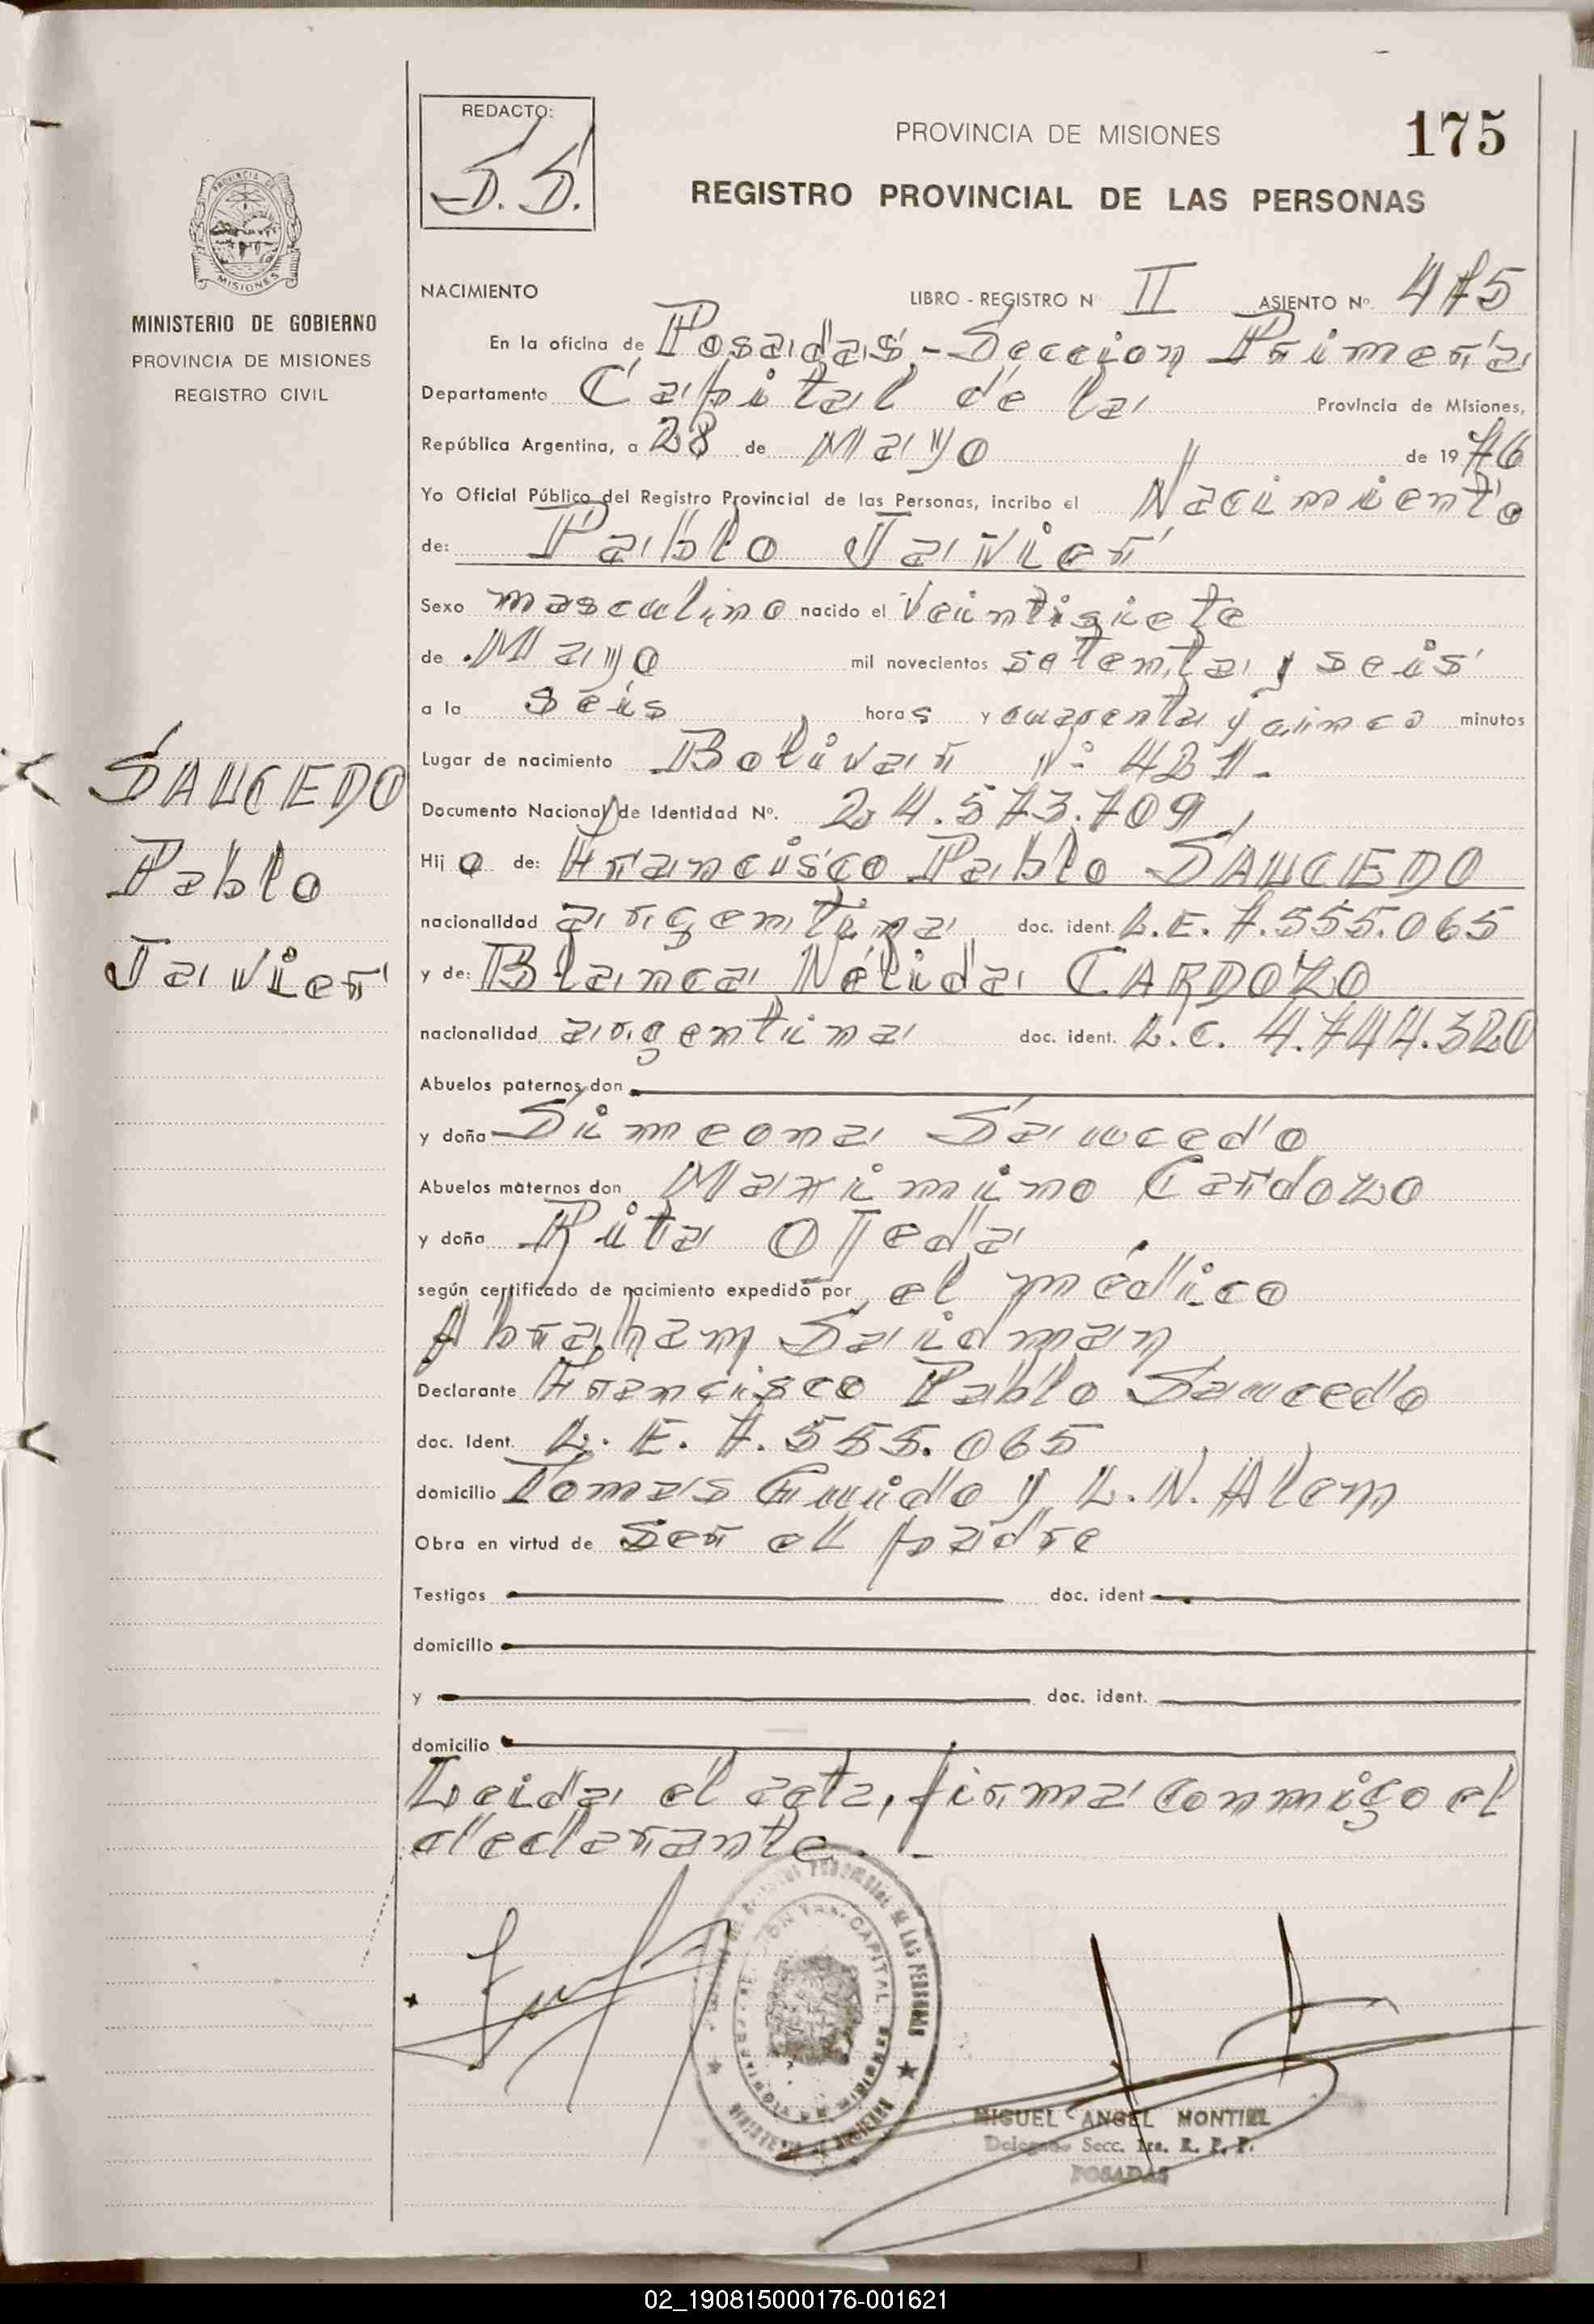 REDACTO:
S.S.
PROVINCIA DE MISIONES
175
REGISTRO PROVINCIAL DE LAS PERSONAS
PROVINCIA DE
MISIONES
MINISTERIO DE GOBIERNO
PROVINCIA DE MISIONES
REGISTRO CIVIL
NACIMIENTO LIBRO - REGISTRO N II ASIENTO Nº. 475
En la oficina de Posadas - Seccion Primera
Departamento Capital de la Provincia de Misiones,
República Argentina, a 28 de Mayo de 1976
Yo Oficial Público del Registro Provincial de las Personas, incribo el Nacimiento
de: Pablo Javier
Sexo masculino nacido el Veintisiete
de Mayo mil novecientos setenta y seis
a la seis horas y cuarenta y cinco minutos
Lugar de nacimiento Bolivar Nº 421.
Documento Nacional de Identidad Nº. 24.573.709
SAUCEDO
Pablo
Javier
Hijo de: Francisco Pablo SAUCEDO
nacionalidad argentina doc. ident. L.E. 7.555.065
y de: Blanca Nélida CARDOZO
nacionalidad argentina doc. ident. L.C. 4.744.320
Abuelos paternos don
y doña Simeona Saucedo
Abuelos maternos don Maximino Cardozo
y doña Rita Ojeda
según certificado de nacimiento expedido por el médico
Abraham Saidman
Declarante Francisco Pablo Saucedo
doc. Ident. L.E. 7.555.065
domicilio Tomas Guido y L.N. Alem
Obra en virtud de ser el padre
Testigos doc. ident
domicilio
y doc. ident.
domicilio
Leida el acta, firma conmigo el
declarante.-
MIGUEL ANGEL MONTIEL
Delegado Secc. 1ra. R. P. P.
POSADAS
02_190815000176-001621